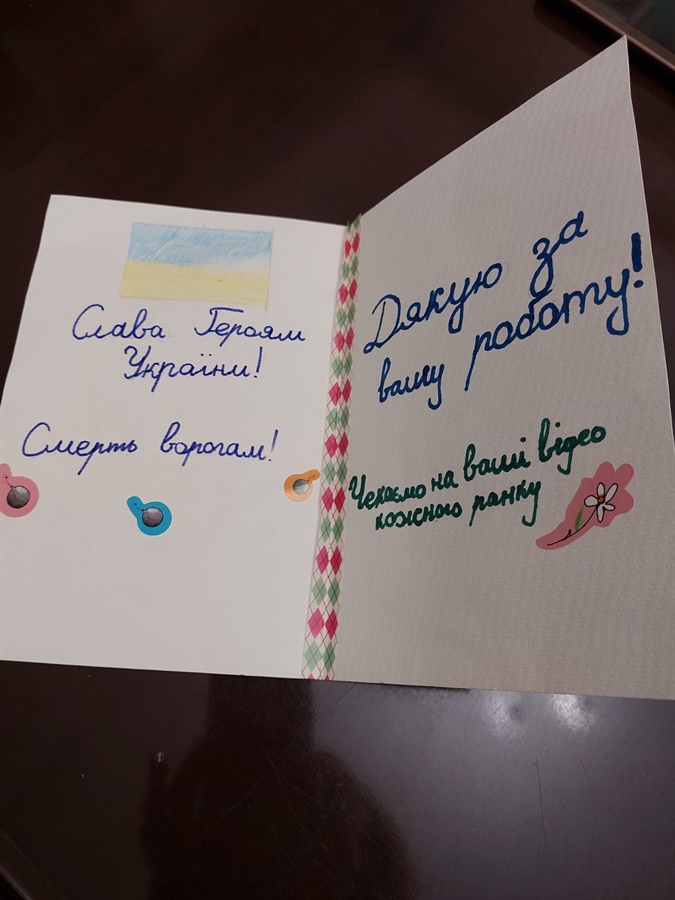 Слава Героям
України!
Смерть ворогам!
Дякую за
вашу роботу!
Чекаємо на ваші відео
кожного ранку